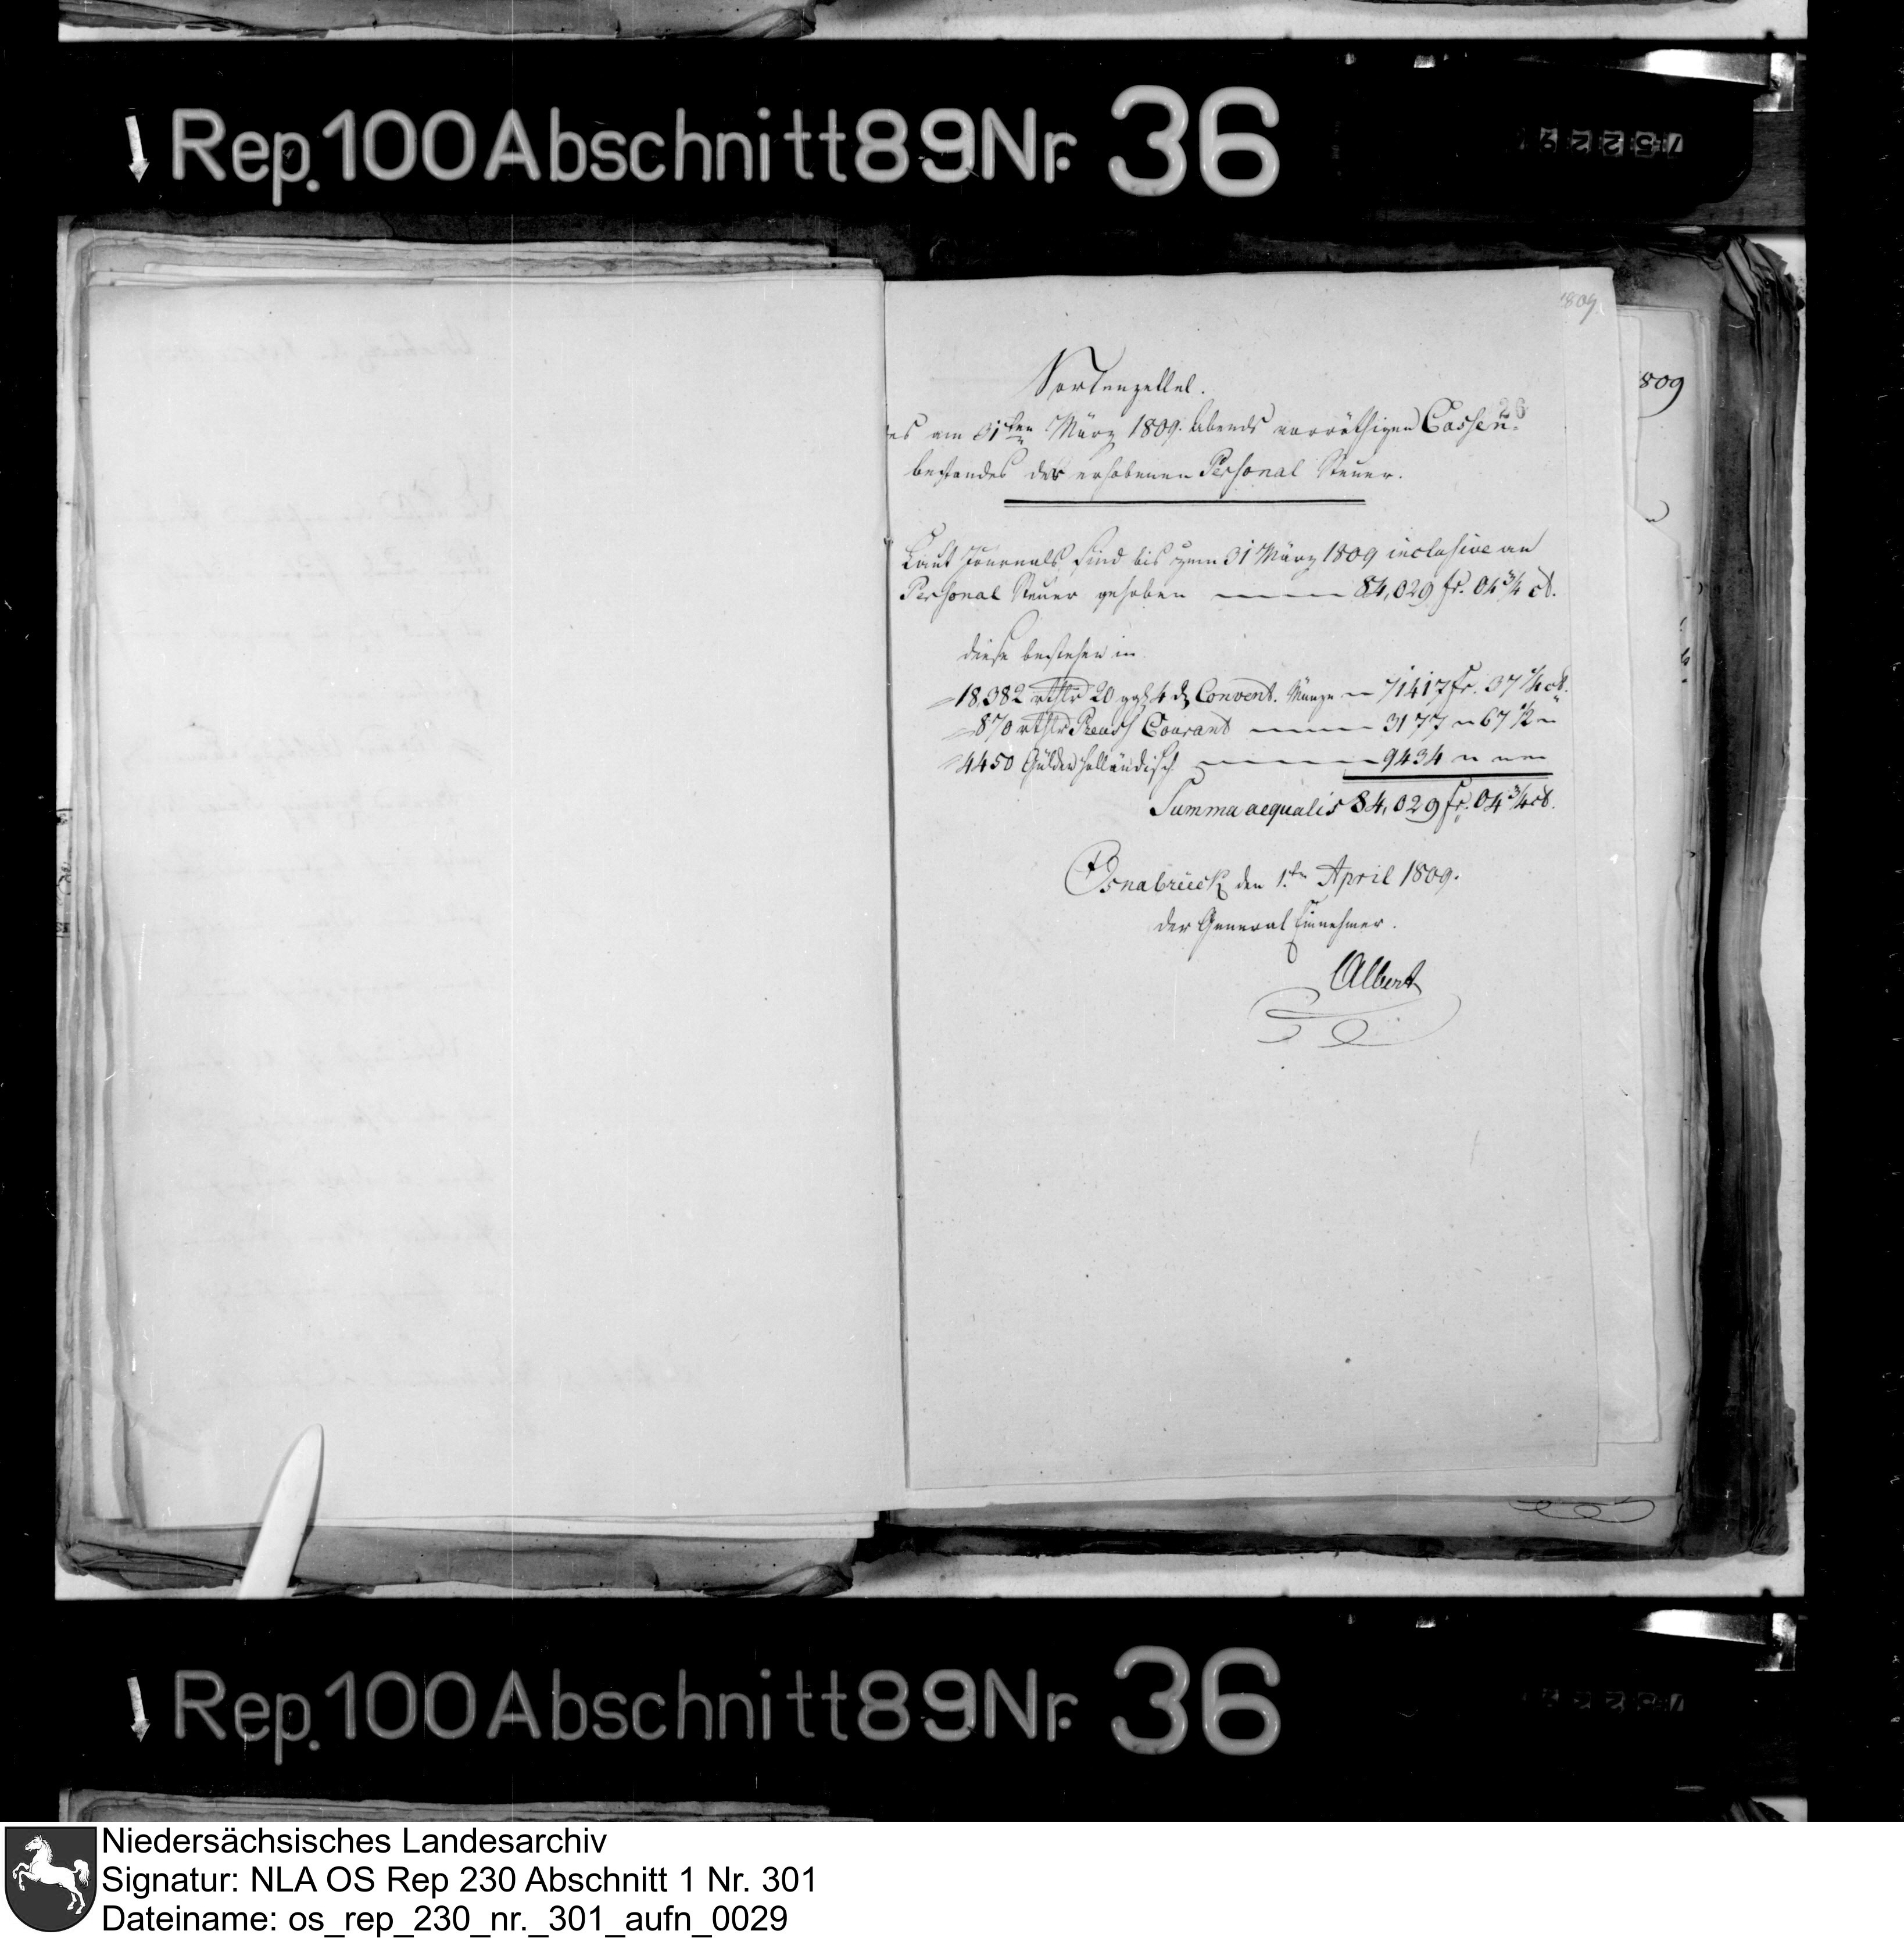 Rep. 100 Abschnitt 89 Nr. 36
1809
809
26
Sortenzettel.
des am 31ten März 1809. Abends vorräthigen Cassen-
bestandes der erhobenen Personal Steuer.
Laut Journals sind bis zum 31 März 1809 inclusive an
Personal Steuer gehoben 84,029 fr. 04 3/4 ct.
diese bestehen in
18,382 rthlr 20 ggr 4 d Convent. Münze 71417 fr. 37 1/4 ct.
870 rthlr Preuss Courant 3177 " 67 1/2 "
4450 Gülden holländisch 9434 " " "
Summa aequalis 84,029 fr. 04 3/4 ct.
Osnabrück den 1.ten April 1809.
der General Einnehmer.
Albert
Rep. 100 Abschnitt 89 Nr. 36
Niedersächsisches Landesarchiv
Signatur: NLA OS Rep 230 Abschnitt 1 Nr. 301
Dateiname: os_rep_230_nr._301_aufn_0029